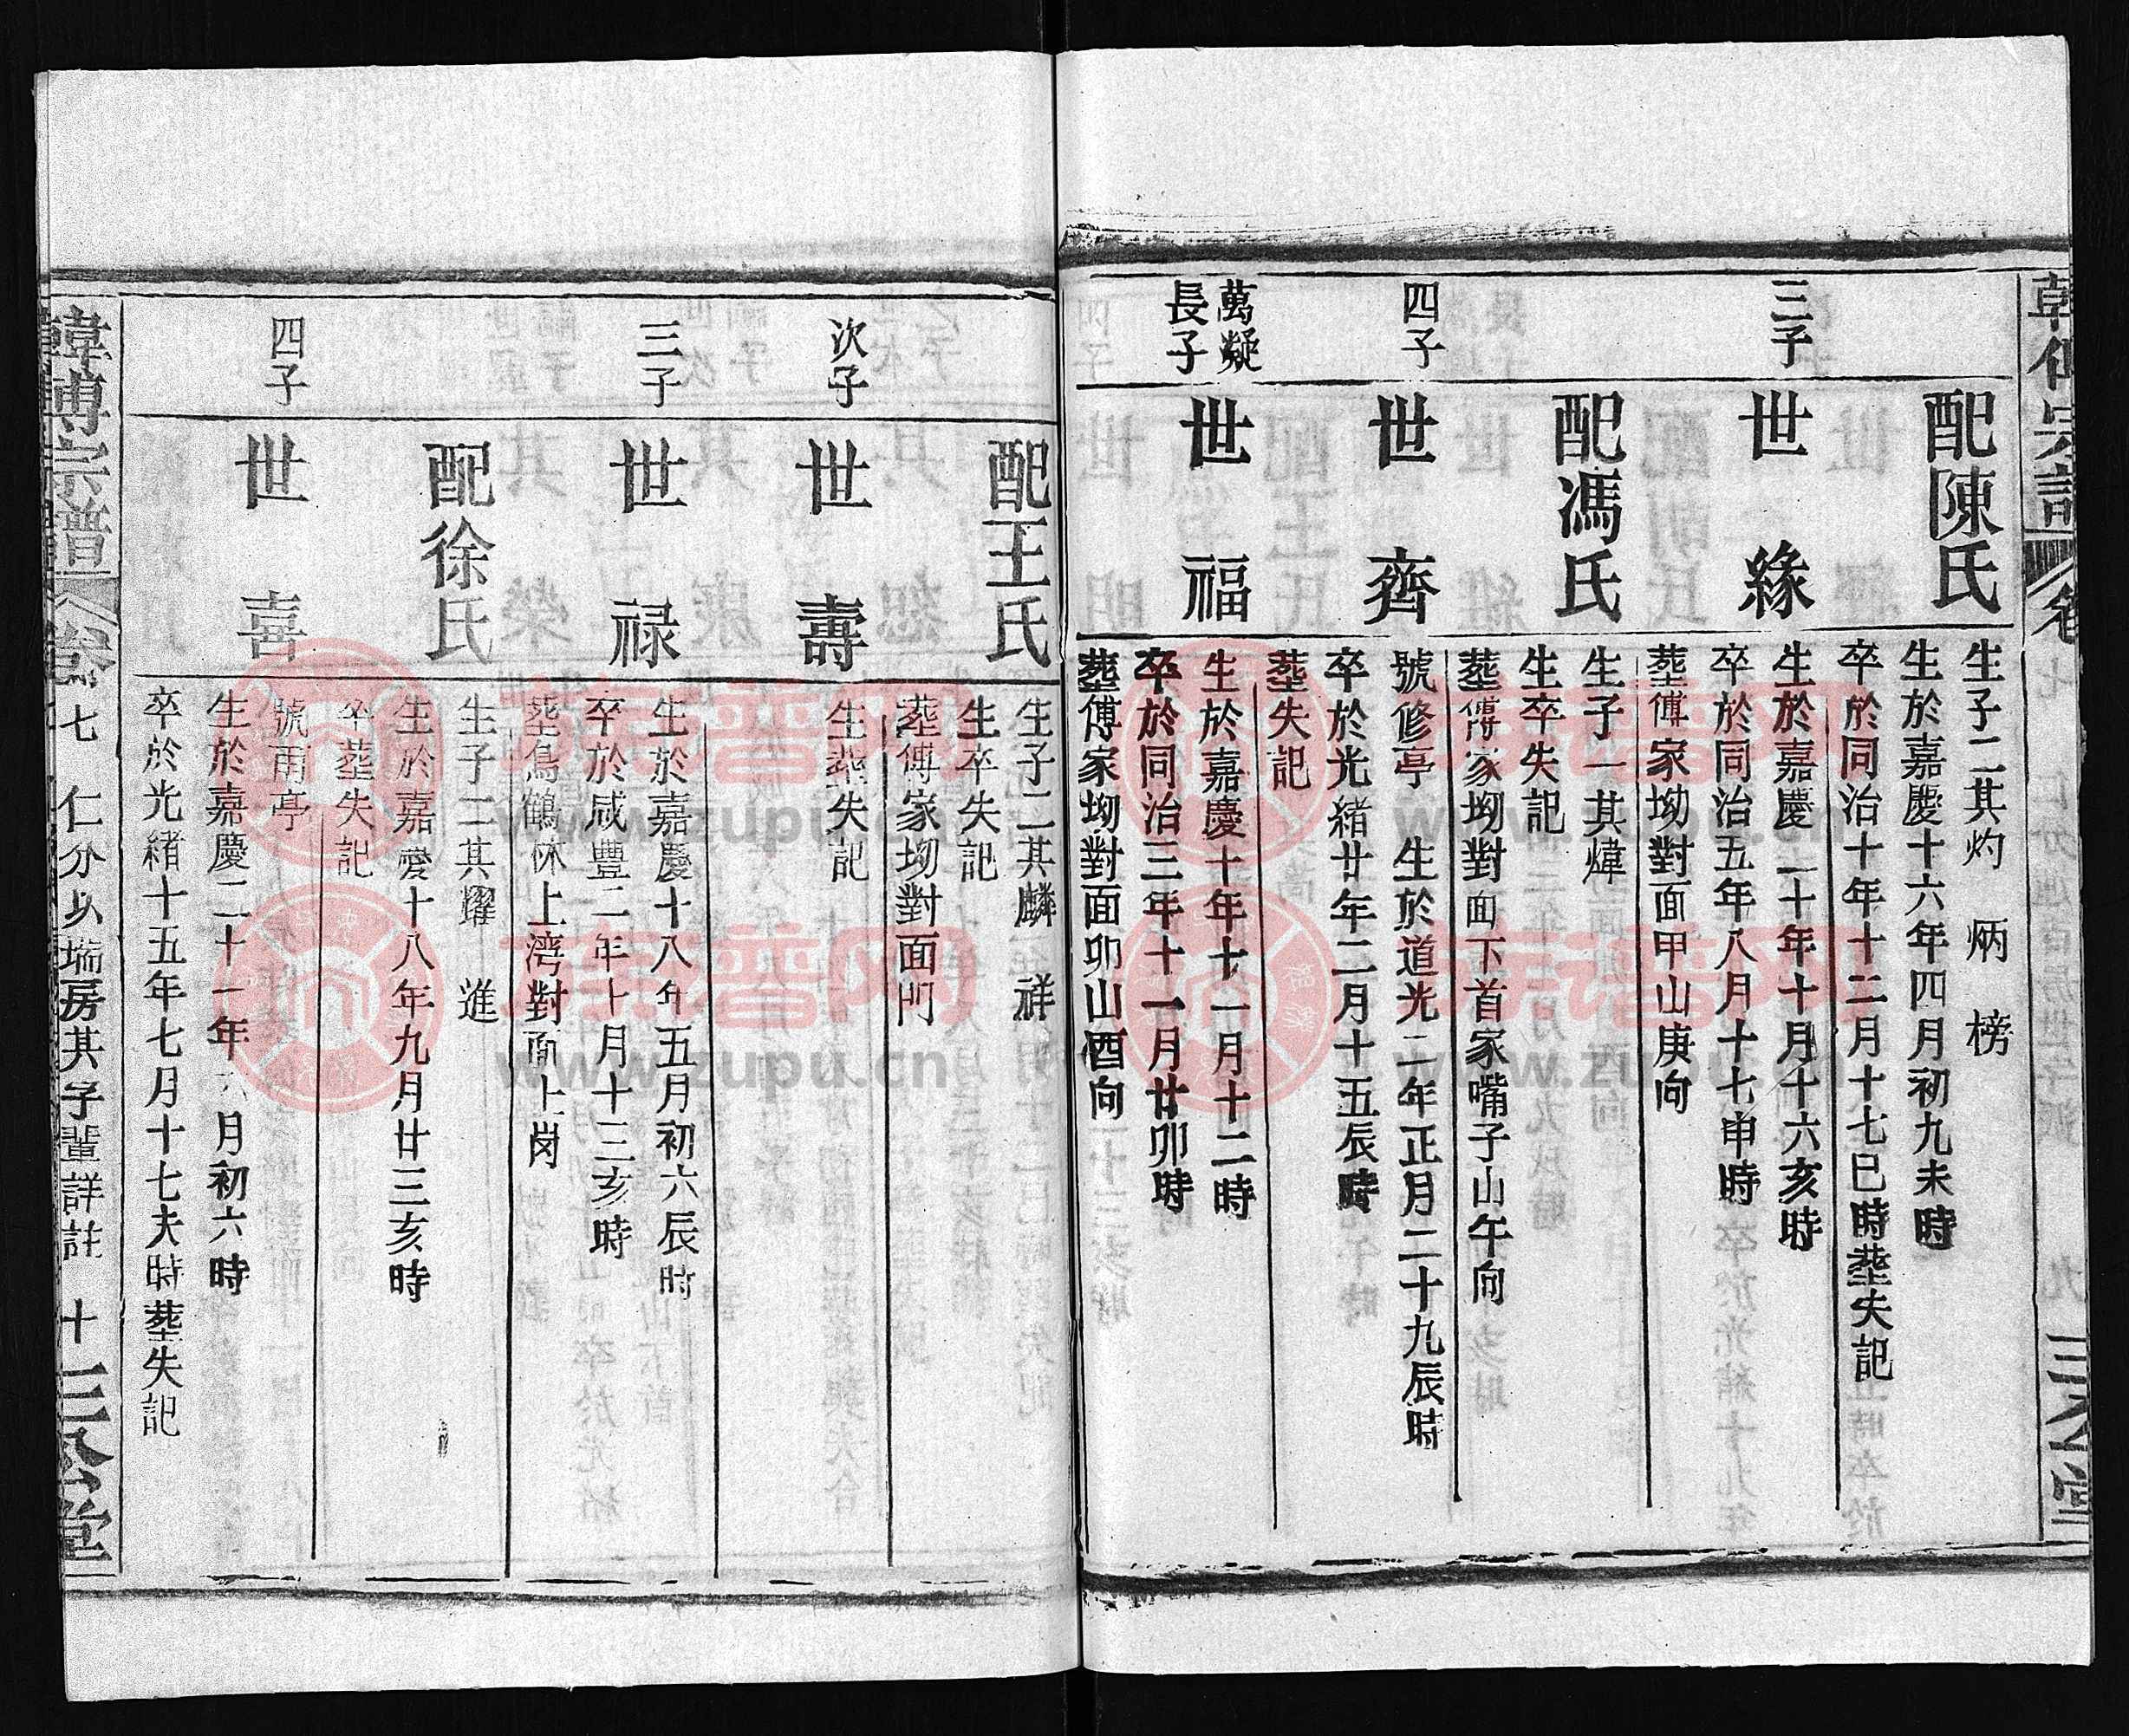 配陳氏
生子二其灼　炳　榜
生於嘉慶十六年四月初九未時
卒於同治十年十二月十七巳時塟失記
三子
世緣
生於嘉慶二十年十月十六亥時
卒於同治五年八月十七申時
塟傅家坳對面甲山庚向
配馮氏
生子一其煒
生卒失記
塟傅家坳對面下首家嘴子山午向
四子
世齊
號修亭　生於道光二年正月二十九辰時
卒於光緒廿年二月十五辰時
塟失記
萬凝
長子
世福
生於嘉慶十年十一月十二時
卒於同治三年十一月廿卯時
塟傅家坳對面卯山酉向
配王氏
生子二其麟　祥
生卒失記
塟傅家坳對面門
次子
世壽
生塟失記
三子
世祿
生於嘉慶十八年五月初六辰時
卒於咸豐二年十月十三亥時
塟烏鶴林上湾對面上崗
配徐氏
生子二其耀　進
生於嘉慶十八年九月廿三亥時
卒塟失記
四子
世喜
號雨亭
生於嘉慶二十一年六月初六時
卒於光緒十五年七月十七夫時塟失記
韓傅宗譜
卷七　仁分以瑞房其字輩詳註　十
三公堂
族譜网
www.zupu.cn